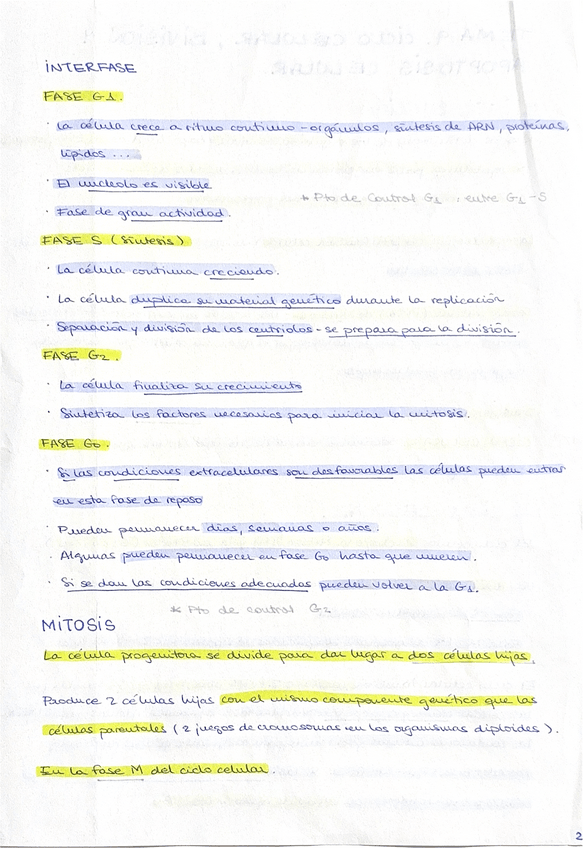 INTERFASE
FASE G1.
· La célula crece a ritmo continuo - orgánulos, síntesis de ARN, proteínas,
lípidos ...
· El nucleolo es visible
* Pto de Control G1, entre G1 - S
· Fase de gran actividad.
FASE S (Síntesis)
· La célula continua creciendo.
· La célula duplica su material genético durante la replicación
· Separación y división de los centriolos - se prepara para la división.
FASE G2.
· La célula finaliza su crecimiento
· Sintetiza los factores necesarios para iniciar la mitosis.
FASE G0.
· Si las condiciones extracelulares son desfavorables las células pueden entrar
en esta fase de reposo
· Pueden permanecer días, semanas o años.
· Algunas pueden permanecer en fase G0 hasta que mueren.
· Si se dan las condiciones adecuadas pueden volver a la G1.
* Pto de control G2
MITOSIS
La célula progenitora se divide para dar lugar a dos células hijas.
Produce 2 células hijas con el mismo componente genético que las
células parentales (2 juegos de cromosomas en los organismos diploides).
En la fase M del ciclo celular.
2